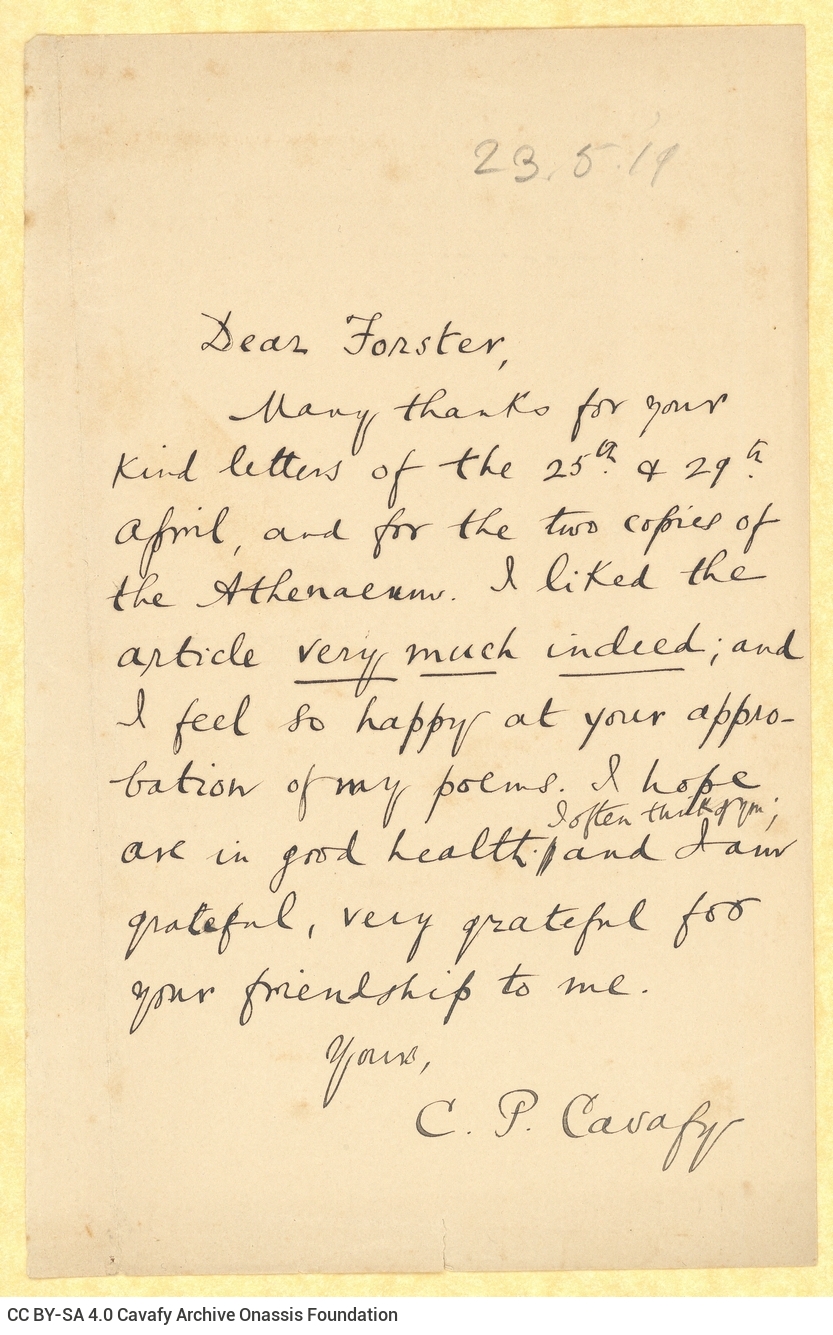 23.5.19
Dear Forster,
Many thanks for your
kind letters of the 25th. & 29th.
April, and for the two copies of
the Athenaeum. I liked the
article very much indeed; and
I feel so happy at your appro-
bation of my poems. I hope
I often think of you;
are in good health. and I am
grateful, very grateful for
your friendship to me.
Yours,
C. P. Cavafy
CC BY-SA 4.0 Cavafy Archive Onassis Foundation